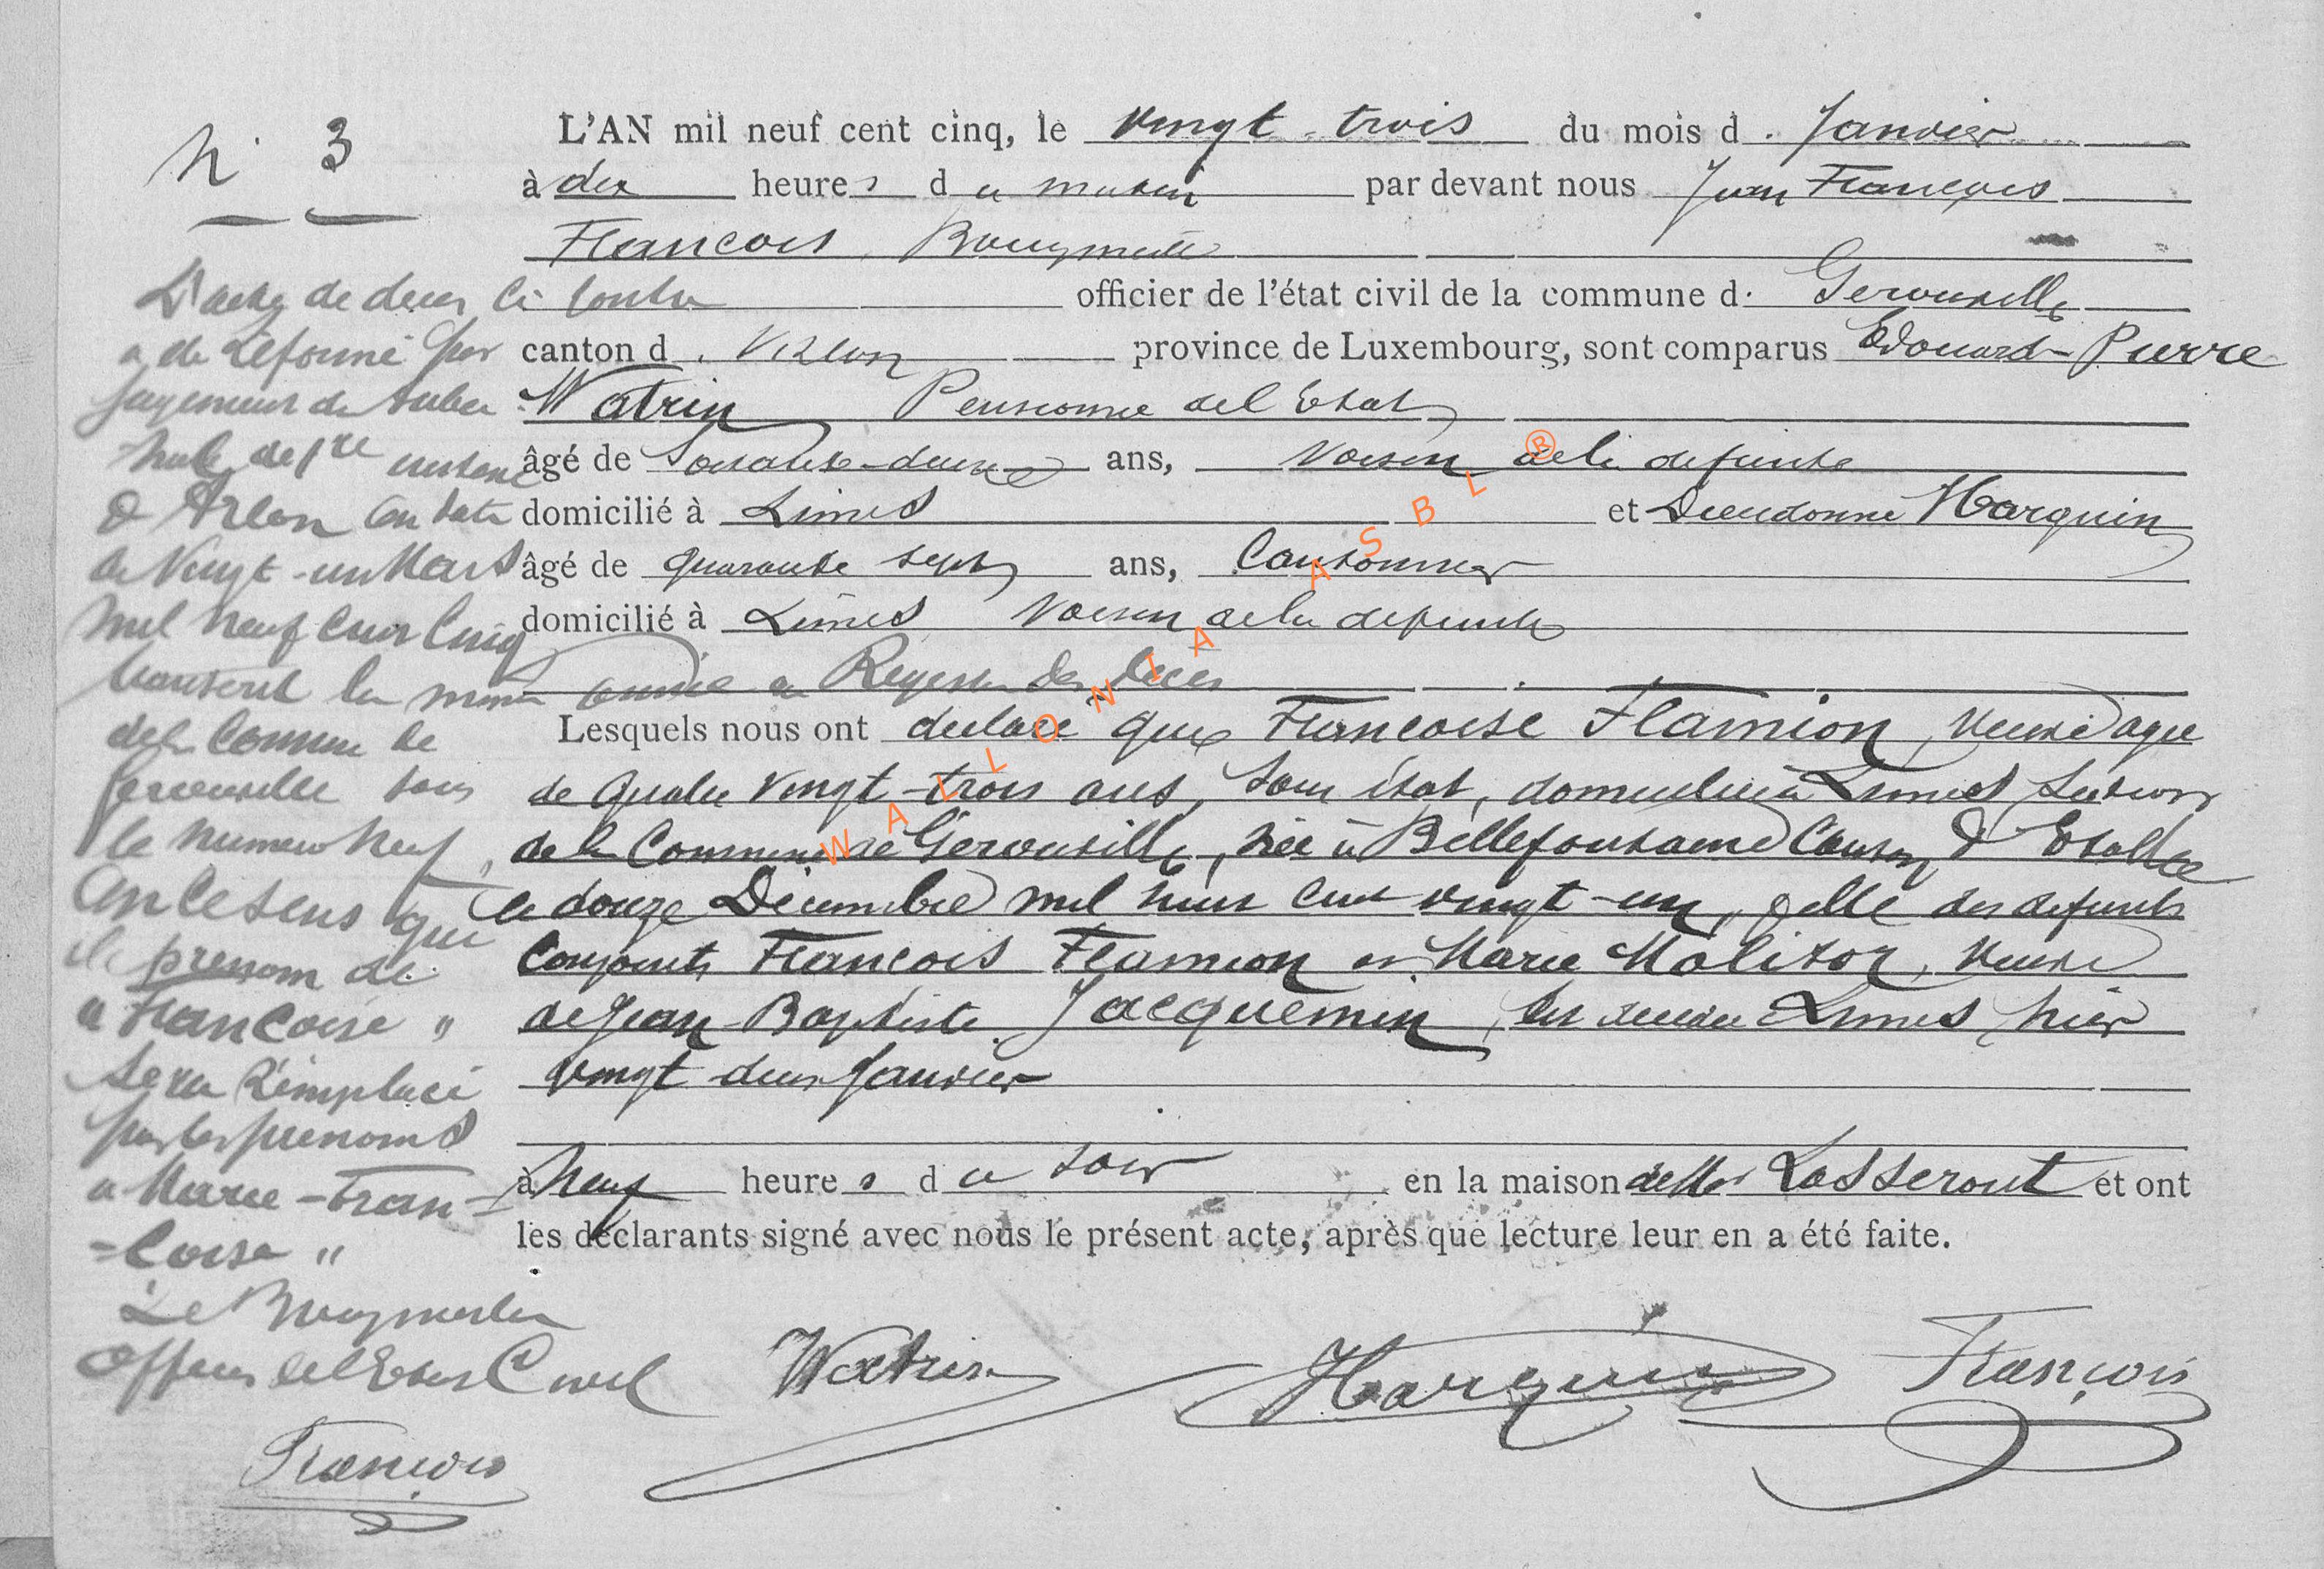 N° 3
L'AN mil neuf cent cinq, le vingt-trois du mois d. Janvier
à dix heures du matin par devant nous Jean François
François, Bourgmestre
officier de l'état civil de la commune d. Gerouville
canton d. Virton province de Luxembourg, sont comparus Edouard-Pierre
Watrin Pensionné de l'Etat
âgé de Soixante-douze ans, Voisin de la defunte
domicilié à Limes et Dieudonné Harquin
âgé de quarante sept ans, Cantonnier
domicilié à Limes Voisin de la defunte
Lesquels nous ont declaré que Francoise Flamion, veuve agee
de quatre vingt-trois ans, sans état, domiciliée à Limes Section
de la Commune de Gerouville, née à Bellefontaine Canton d'Etalle
le douze Décembre mil huit cent vingt-un, fille des defunts
Conjoints Francois Flamion et Marie Molitor, veuve
de Jean-Baptiste Jacquemin, est décédée à Limes hier
vingt deux Janvier
à neuf heures du soir en la maison de Mr Lasseront et ont
les déclarants signé avec nous le présent acte, après que lecture leur en a été faite.
L'acte de deces ci contre
a été Réformé par
jugement du tribu
nal de 1re instance
d'Arlon en date
du Vingt-un Mars
mil neuf cent cinq
transcrit la même année au Registre des deces
de la Commune de
Gerouville sous
le numero neuf,
en ce sens que
le prenom de
"Francoise"
sera Remplacé
par les prenoms
"Marie-Fran-
=coise"
Le Bourgmestre
Officier de l'Etat Civil
François
Watrin
Harquin
François
WALLONIA ASBL ®